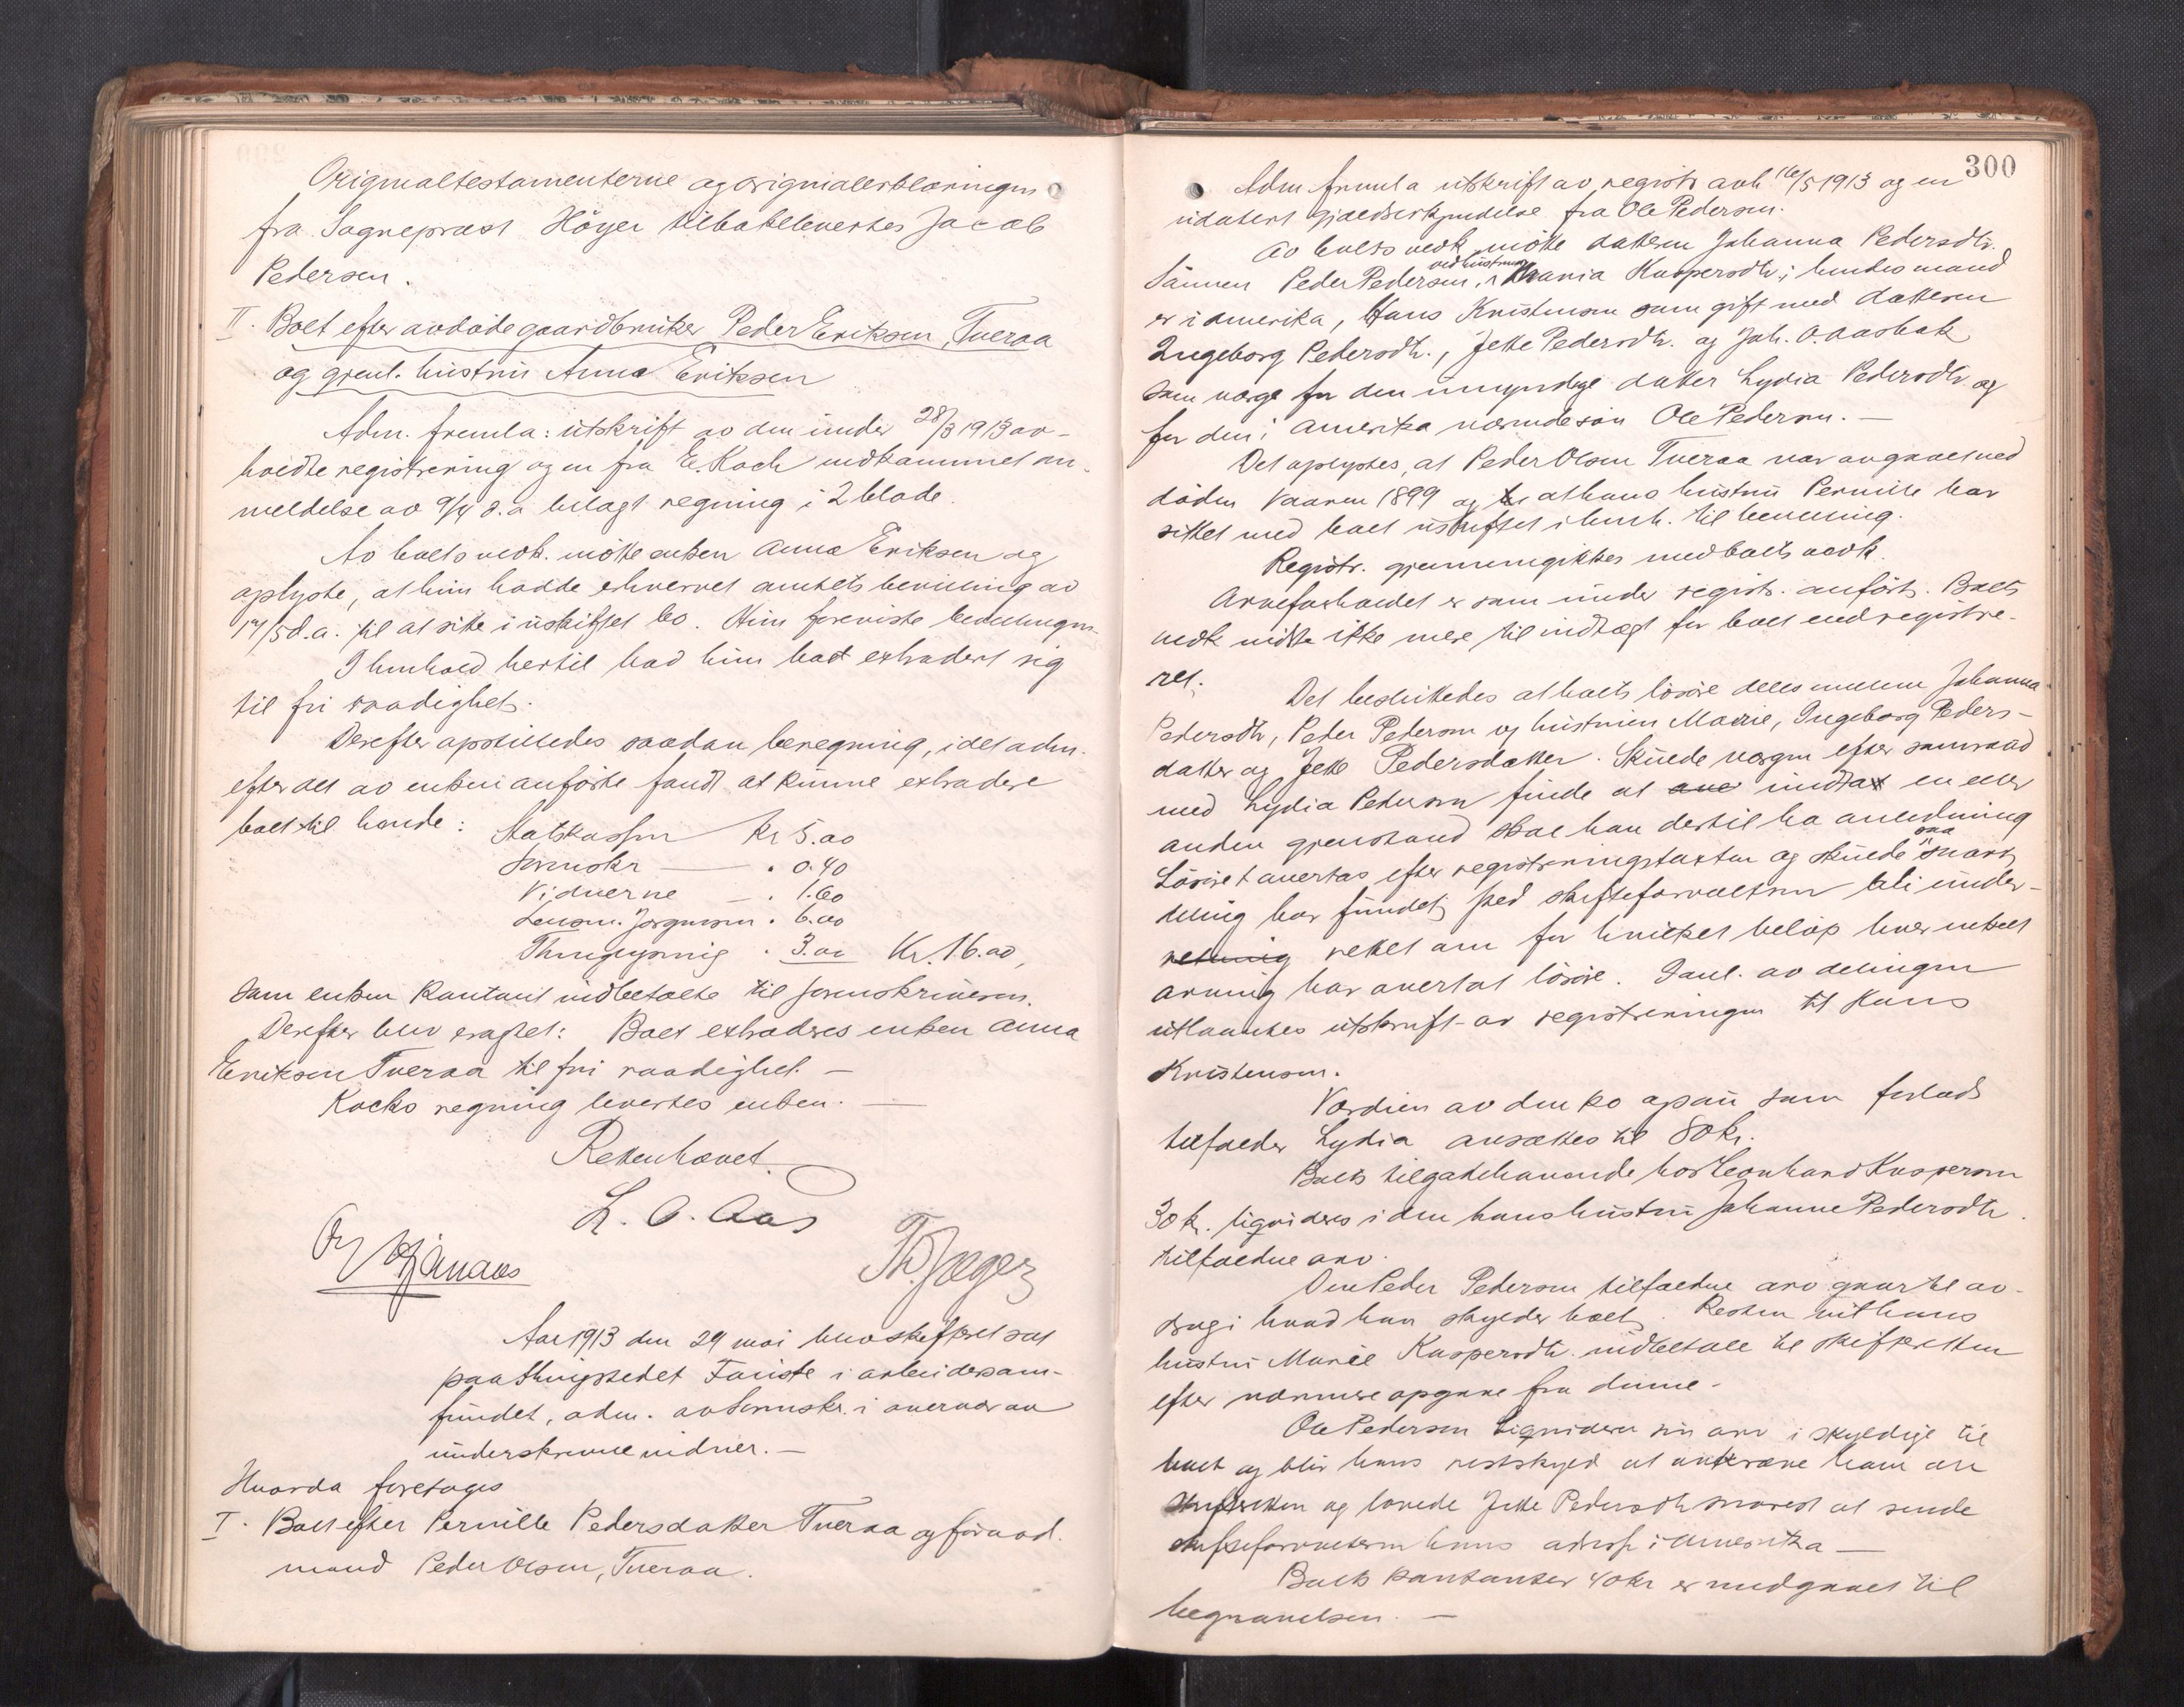 Originaltestamenterne og originalerklæringen
fra Sogneprest Höyer tilbakeleveres Jacob
Pedersen.
II. Boet efter avdöde gaardbruker Peder Eriksen, Tveraa
og gjenl. hustru Anna Eriksen
Adm. fremla: utskrift av den under 28/3 1913 av-
holdte registrering og en fra E. Koch indkommet an-
meldelse av 9/4 d.a. bilagt regning i 2 blade.
Av boets vedk. mötte enken Anna Eriksen og
oplyste, at hun hadde erhvervet amtets bevilling av
14/5 d.a. til at sitte i uskiftet bo. Hun foreviste bevillingen.
I henhold hertil bad hun boet extradert sig
til fri raadighet.
Derefter opstilledes saadan beregning, idet adm.
efter det av enken anförte fandt at kunne extradere
boet til hende: Statskassen Kr 5.00
Sorenskr — " 0.40
Vidnerne — " 1.60
Lensm. Jörgensen " 6.00
Thinglysning " 3.00 Kr. 16.00,
som enken kontant indbetalte til sorenskriveren.
Derefter blev eragtet: Boet extraderes enken Anna
Eriksen Tveraa til fri raadighet. —
Kochs regning levertes enken. —
Retten hævet.
L. O. Aas
Th. Jæger
Aar 1913 den 29 mai blev skifteret sat
paa thingstedet Fauske i arbeidersam-
fundet, adm. av sorenskr. i overvær av
underskrevne vidner. —
Hvorda foretoges
I. Boet efter Pernille Pedersdatter Tveraa og forud.
mand Peder Olsen, Tveraa.
300
Adm fremla utskrift av registr avh 16/5 1913 og en
udatert gjældserkjendelse fra Ole Pedersen.
Av boets vedk mötte datteren Johanna Pedersdtr.
Sönnen Peder Pedersen, ved hustru Maria Kaspersdtr; hendes mand
er i Amerika, Hans Kristensen som gift med datteren
Ingeborg Pedersdtr., Jette Pedersdtr. og Joh. O. Aasbak
som værge for den umyndige datter Lydia Pedersdtr og
for den i Amerika værende sön Ole Pedersen. —
Det oplystes, at Peder Olsen Tveraa var avgaaet ved
döden vaaren 1899 og at hans hustru Pernille har
sittet med boet uskiftet i henh. til bevilling.
Registr. gjennemgikkes med boets vedk.
Arveforholdet er som under registr. anfört. Boets
vedk vidste ikke mere til indtægt for boet end registre-
ret.
Det besluttedes at boets lösöre deles mellem Johanna
Pedersdtr, Peder Pedersen og hustruen Marie, Ingeborg Peders-
datter og Jette Pedersdatter. Skulde værgen efter samraad
med Lydia Pedersen finde at ave indta en eller
anden gjenstand skal han dertil ha anledning
Lösöret overtas efter registreringstaxten og skulde saa snart
deling har fundet sted skifteforvalteren bli under-
retning rettet om for hvilket belöp hver enkelt
arving har overtat lösöre. I anl. av delingen
utlaantes utskrift av registreringen til Hans
Kristensen.
Værdien av den ko ogsau som forlods
tilfalder Lydia ansættes til 80 kr.
Boets tilgodehavende hos Leonhard Kaspersen
30 kr. liqvideres i den hans hustru Johanne Pedersdtr.
tilfaldne arv.
Den Peder Pedersen tilfaldne arv gaar til av-
drag i hvad han skylder boet. Resten vil hans
hustru Marie Kaspersdtr. indbetale til skifteretten
efter nærmere opgave fra denne.
Ole Pedersen liqviderer sin arv i skyldige til
boet og blir hans restskyld at inkræve ham av
skifteretten og lovede Jette Pedersdtr snarest at sende
skifteforvalteren hans adresse i Amerika —
Boets kontanter 40 kr er medgaaet til
begravelsen. —